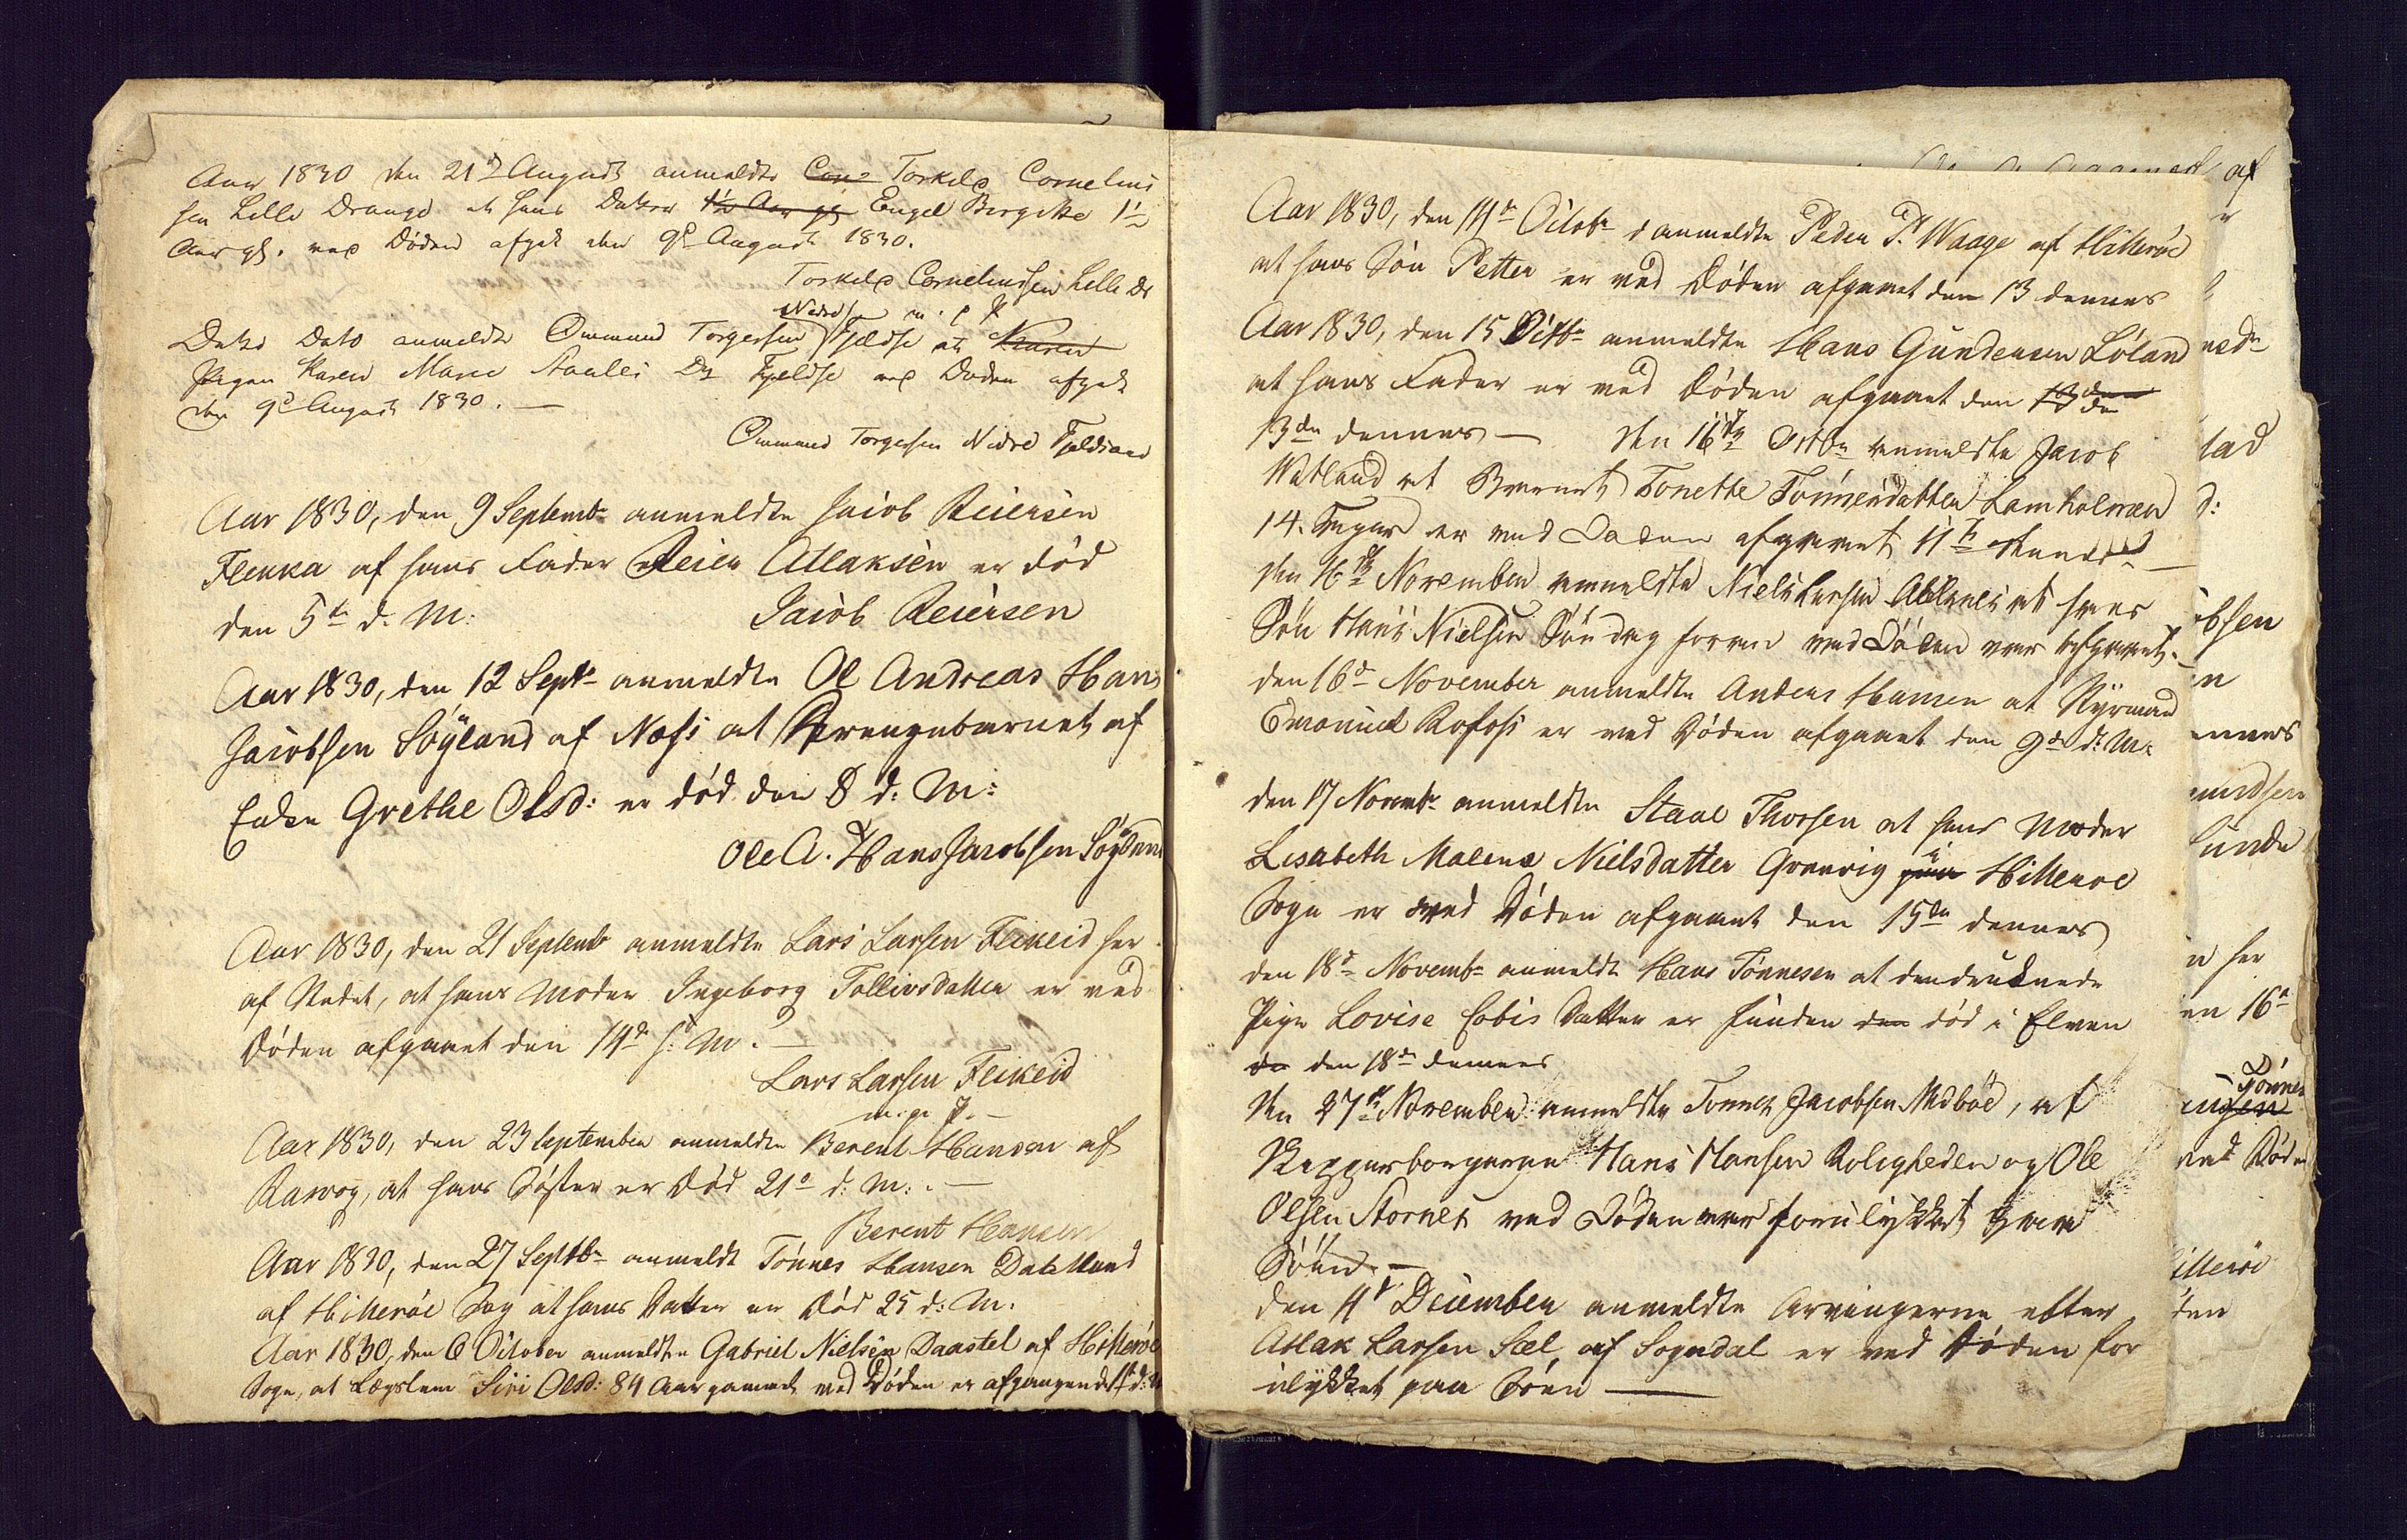 Aar 1830 den 21d August anmeldte Con- Torkild Cornelius
sen Lille Drange at hans Datter 1½ Aar gl Engel Birgitte 1½
Aar gl. ved Døden afgik den 9d August 1830.
Torkild Corneliussen Lille Dr
m. p. P.
Dato Dato anmeldte Ommund Torgersen Nedre Fjeldse at Karen
Pigen Karen Marie Staalesdr Fjeldse ved Døden afgik
den 9d August 1830. —
Ommund Torgersen Nedre Fjeldsaae
Aar 1830, den 9 Septembr anmeldte Jacob Reiersen
Flikka af hans Fader Reier Atlaksen er død
den 5te d. M:
Jacob Reiersen
Aar 1830, den 12 Septr anmeldte Ol Andreas Hans
Jacobsen Söyland af Næss at Drengebarnet af
Enke Grethe Olsd: er død den 8 d: M:
Ole A. Hans Jacobsen Söyland
Aar 1830, den 21 Septembr anmeldte Lars Larsen Fleikeid her
af Stedet, at hans Moder Ingeborg Tollivsdatter er ved
Døden afgaaet den 14de h. M. —
Lars Larsen Fleikeid
m. p. P. —
Aar 1830, den 23 September anmeldte Berent Hansen af
Rasvog, at hans Søster er Død 21d d: M: . —
Berent Hansen
Aar 1830, den 27 Septbr anmeldt Tönnes Hansen Dateland
af Hitterøe Sog at hans Datter er Død 25 d: M.
Aar 1830, den 6 October anmeldte Gabriel Nielsen Daastøl af Hitterøe
Sogn, at Lægslem Siri Olsd: 84 Aar gammel ved Døden er afgangen d: d: M
Aar 1830, den 14de Octobr anmeldte Peder P. Waage af Hitterøe
at hans Søn Petter er ved Døden afgaaet den 13 dennes
Aar 1830, den 15 Octbr anmeldte Hans Gundersen Löland
at hans Fader er ved Døden afgaaet den 13 den
13de dennes — den 16de Octbr anmeldte Jacob
Watland at Barnet Tonette Tönnesdatter Lamholmen
14. Dage er ved Døden afgaaet 11te
den 16de November anmeldte Niels Larsen Abelnes at hans
Søn Hans Nielsen Søndag forren ved Døden var afgaaet. —
den 16d November anmeldte Anders Hansen at Styrmand
Emanuel Rofoss er ved Døden afgaaet den 9de d: M:
den 17 Novembr anmeldte Staal Thorsen at hans Moder
Lisabeth Malene Nielsdatter Qvanvig i paa Hitterøe
Sogn er ved Døden afgaaet den 15de dennes
den 18d Novembr anmeldt Hans Tönnesen at den druknede
Pige Lovise Cobis Datter er funden den død i Elven
de den 18de dennes
den 27de November anmeldte Tönnes Jacobsen Midbøe, at
Skipperborgeren Hans Hansen Roligheden og Ole
Olsen Stornes ved Døden var forulykket paa
Søen. —
den 4d December anmeldte Arvingerne efter
Atlak Larsen Sæl, af Sogndal er ved Døden for
ulykket paa Søen —
af
stad
bsen
mers
undsen
her
en 16d
Tönnes
ved Død
itterøe
den